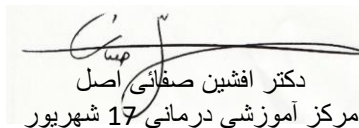 دکتر افشین صفائی اصل
مرکز آموزشی درمانی 17 شهریور